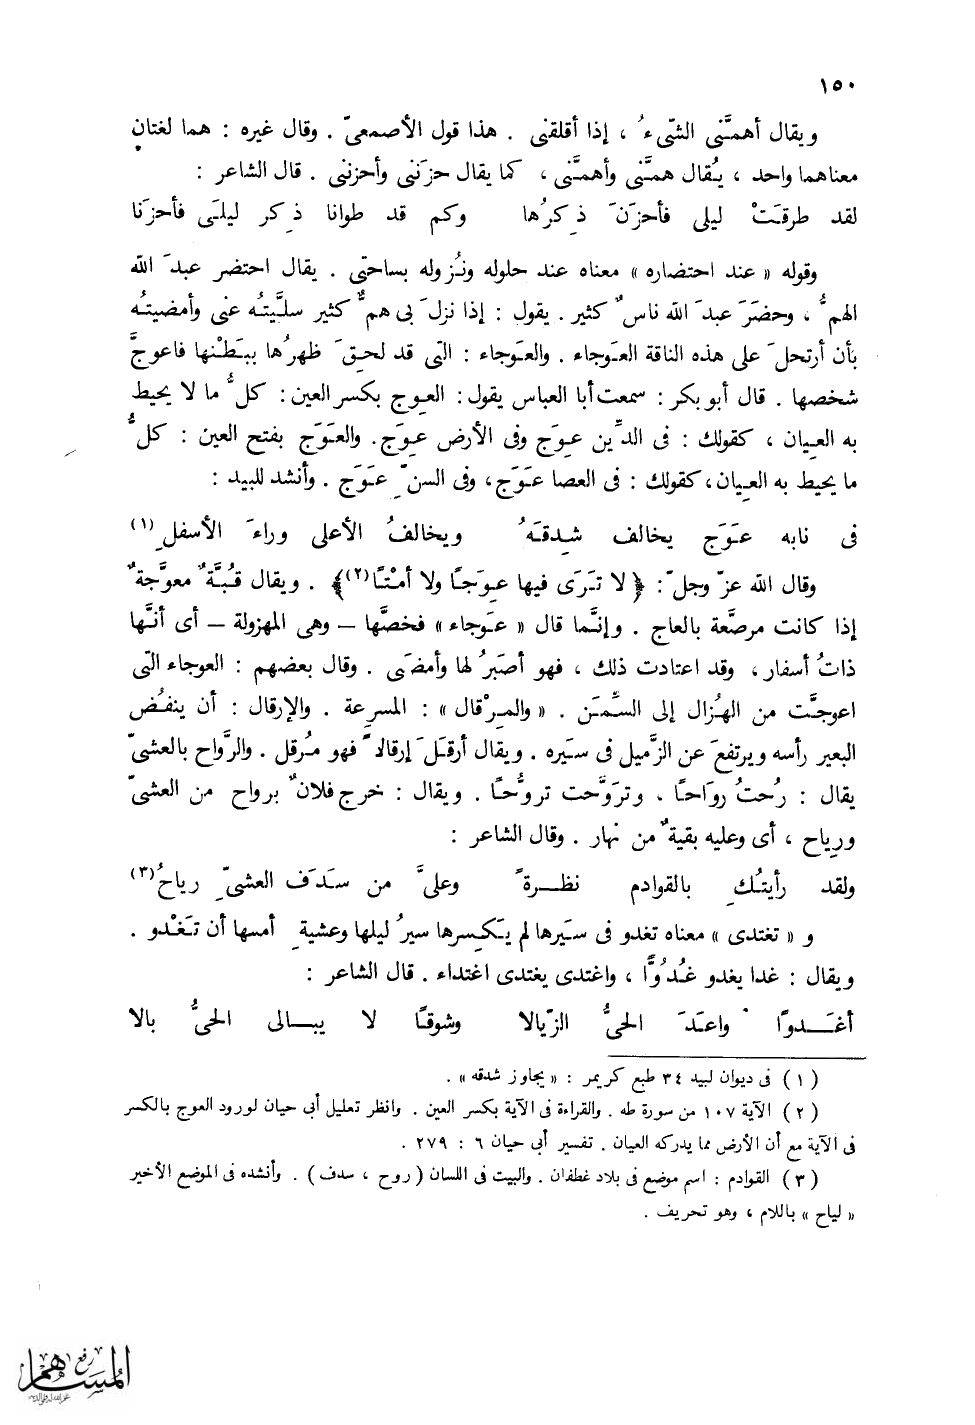 ١٥٠
ويقال أهمَّنى الشىءُ ، إذا أقلقنى . هذا قول الأصمعىّ . وقال غيره : هما لغتانِ
معناهما واحد ، يُقال همَّنى وأهمَّنى ، كما يقال حزَننى وأحزننى . قال الشاعر :
لقد طرقَتْ ليلى فأحزَنَ ذِكرُها وكم قد طوانا ذِكر ليلَى فأحزَنا
وقوله « عند احتضاره » معناه عند حلوله ونُزوله بساحتى . يقال احتضر عبدَ الله
الهمُّ ، وحضَرَ عبدَ الله ناسٌ كثير . يقول : إذا نزلَ بى همٌّ كثير سليَّتُه عنى وأمضيتُه
بأن أرتحلَ على هذه الناقة العَوجاء . والعَوجاء : التى قد لحِقَ ظهرُها ببَطْنها فاعوجَّ
شخصها . قال أبو بكر : سمعت أبا العباس يقول : العِوج بكسر العين : كلُّ ما لا يحيط
به العِيان ، كقولك : فى الدِّين عِوَج وفى الأرض عِوَج . والعَوَج بفتح العين : كلُّ
ما يحيط به العِيان ، كقولك : فى العصا عَوَج ، وفى السنِّ عَوَج . وأنشد للبيد :
فى نابه عَوَج يخالف شِدقَهُ ويخالفُ الأعلى وراءَ الأسفلِ (١)
وقال الله عزّ وجلّ : ﴿ لا تَرَى فيها عِوَجًا ولا أمْتًا (٢) ﴾ . ويقال قُبَّةٌ معوَّجةٌ
إذا كانت مرصَّعة بالعاج . وإنَّما قال « عَوجاء » فخصَّها – وهى المهزولة – أى أنَّها
ذاتُ أسفار ، وقد اعتادت ذلك ، فهو أصبَرُ لها وأمضَى . وقال بعضهم : العوجاء التى
اعوجَّت من الهُزال إلى السِّمَن . « والمِرْقال » : المسرِعة . والإرقال : أن ينفُض
البعير رأسه ويرتفعَ عن الزَّميل فى سيَره . ويقال أرقَلَ إرقالاً فهو مُرقل . والرَّواح بالعشىّ
يقال : رُحتُ رواحًا ، وتروَّحت تروُّحًا . ويقال : خرج فلانٌ برواح من العشىّ
ورِياح ، أى وعليه بقيةٌ من نهار . وقال الشاعر :
ولقد رأيتُكِ بالقوادم نظرةً وعلىَّ من سَدَف العشىِّ رياحُ (٣)
و « تغتدى » معناه تغدو فى سَيرها لم يَكسِرها سيرُ ليلها وعشيةِ أمسها أن تَغْدو .
ويقال : غدا يغدو غُدُوًّا ، واغتدى يغتدى اغتداء . قال الشاعر :
أغُدوًا واعَدَ الحىُّ الزِّيالا وشوقًا لا يبالى الحىُّ بالا
( ١ ) فى ديوان لبيد ٣٤ طبع كريمر : « يجاوز شدقه » .
( ٢ ) الآية ١٠٧ من سورة طه . والقراءة فى الآية بكسر العين . وانظر تعليل أبى حيان لورود العوج بالكسر
فى الآية مع أن الأرض مما يدركه العيان . تفسير أبى حيان ٦ : ٢٧٩ .
( ٣ ) القوادم : اسم موضع فى بلاد غطفان . والبيت فى اللسان ( روح ، سدف ) . وأنشده فى الموضع الأخير
« لياح » باللام ، وهو تحريف .